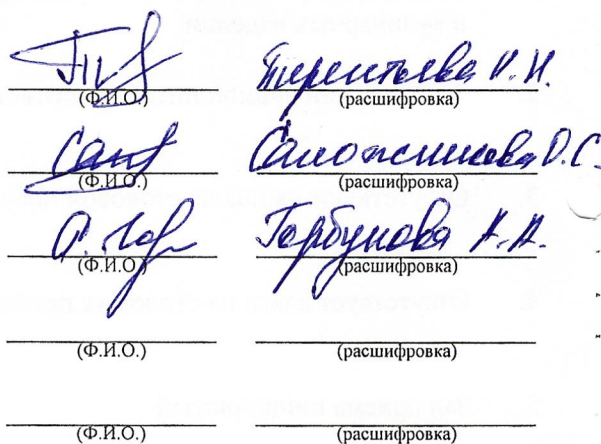 Терентьева И. Н.
(Ф.И.О.) (расшифровка)
Сапожникова О.С.
(Ф.И.О.) (расшифровка)
Горбунова А.А.
(Ф.И.О.) (расшифровка)
(Ф.И.О.) (расшифровка)
(Ф.И.О.) (расшифровка)